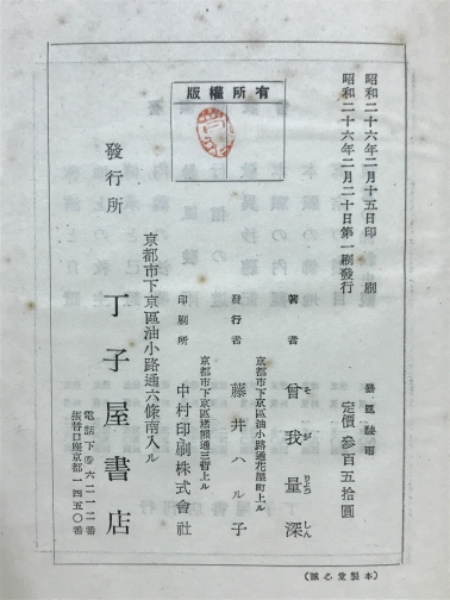 昭和二十六年二月十五日印刷
昭和二十六年二月二十日第一刷發行
版權所有
定價參百五拾圓
著者 曾我量深
そがりょうしん
京都市下京區油小路通花屋町上ル
發行者 藤井ハル子
印刷所 中村印刷株式會社
京都市下京區油小路通六條南入ル
發行所 丁子屋書店
電話下⑤六二一二番
振替口座京都一四五〇番